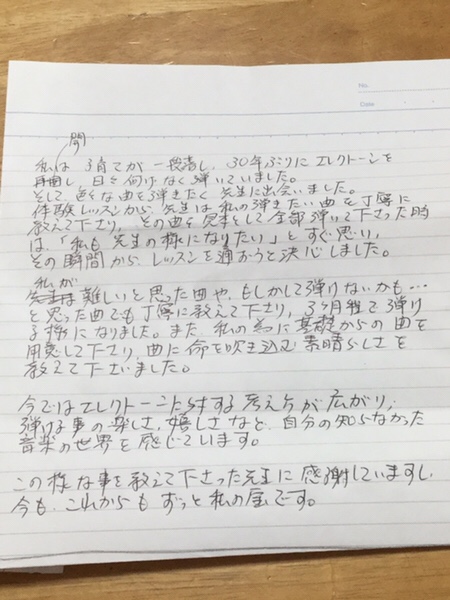 No.
Date
開
私は 子育てが 一段落し、30年ぶりに エレクトーンを
再曲し、日々 何げなく 弾いていました。
そして、色々な曲を弾きたく 先生に出会いました。
体験レッスンから、先生は 私の弾きたい曲を丁寧に
教えて下さり、その曲を見本として全部弾いて下さった時
は、「私も 先生の様になりたい」と すぐ思い、
その瞬間から、レッスンを通おうと決心しました。
私が
先生は 難しいと思った曲や、もしかして弾けないかも…
と思った曲でも丁寧に教えて下さり、3ヶ月程で弾け
る様になりました。また、私の為に基礎からの曲を
用意して下さり、曲に命を吹き込む 素晴らしさを
教えて下さいました。
今ではエレクトーンに対する考え方が広がり、
弾ける事の楽しさ、嬉しさなど、自分の知らなかった
音楽の世界を感じています。
この様な事を教えて下さった先生に感謝していますし、
今も、これからも ずっと私の宝です。